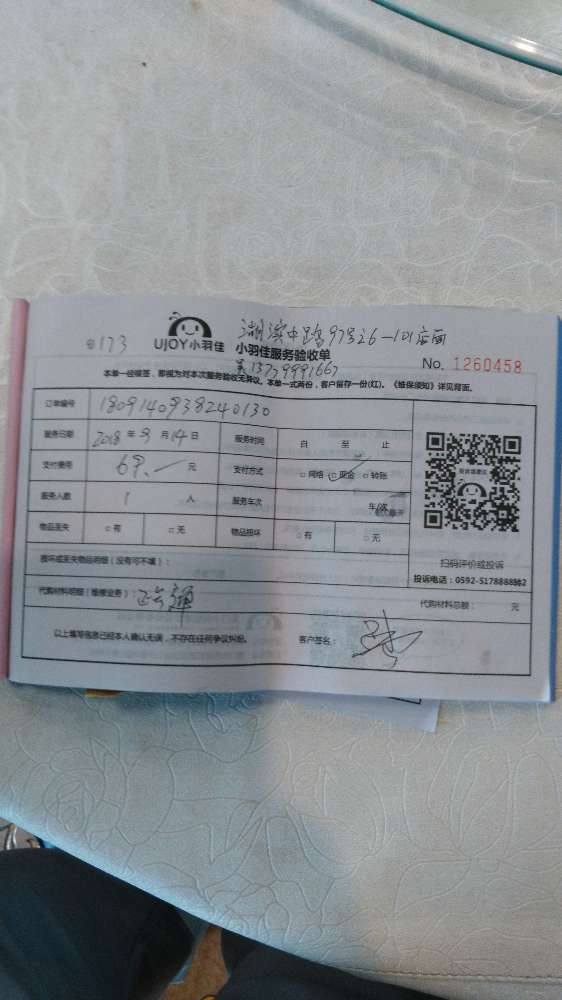 湖滨中路97号26-101店面
173 UJOY小羽佳 小羽佳服务验收单
No. 1260458
吴13779991667
本单一经接签，即视为对本次服务验收无异议。本单一式两份，客户留存一份(红)。《维保须知》详见背面。
订单编号 1809140938240130
服务日期 2018 年 9 月 14 日 服务时间 自 至 止
支付费用 69.— 元 支付方式 □网络 □现金 □转账
服务人数 1 人 服务车次 年/次
物品丢失 □有 □无 物品损坏 □有 □无
扫码评价或投诉
损坏或丢失物品明细（没有可不填）：
投诉电话：0592-5178888转2
代购材料明细（维修业务）： 代购材料总额： 元
以上填写信息已经本人确认无误，不存在任何争议纠纷。 客户签名：